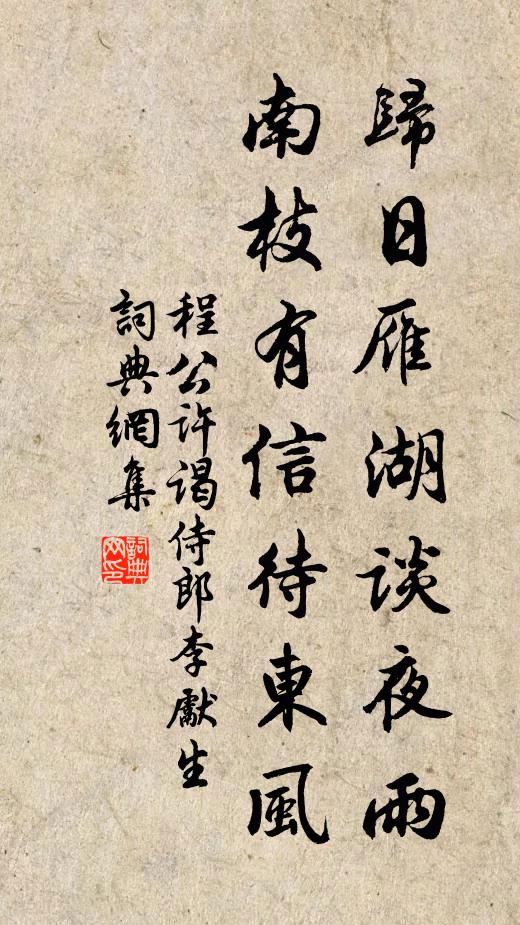 歸日雁湖談夜雨
南枝有信待東風
程公許謁侍郎李獻生
詞典網集
詞典
网印